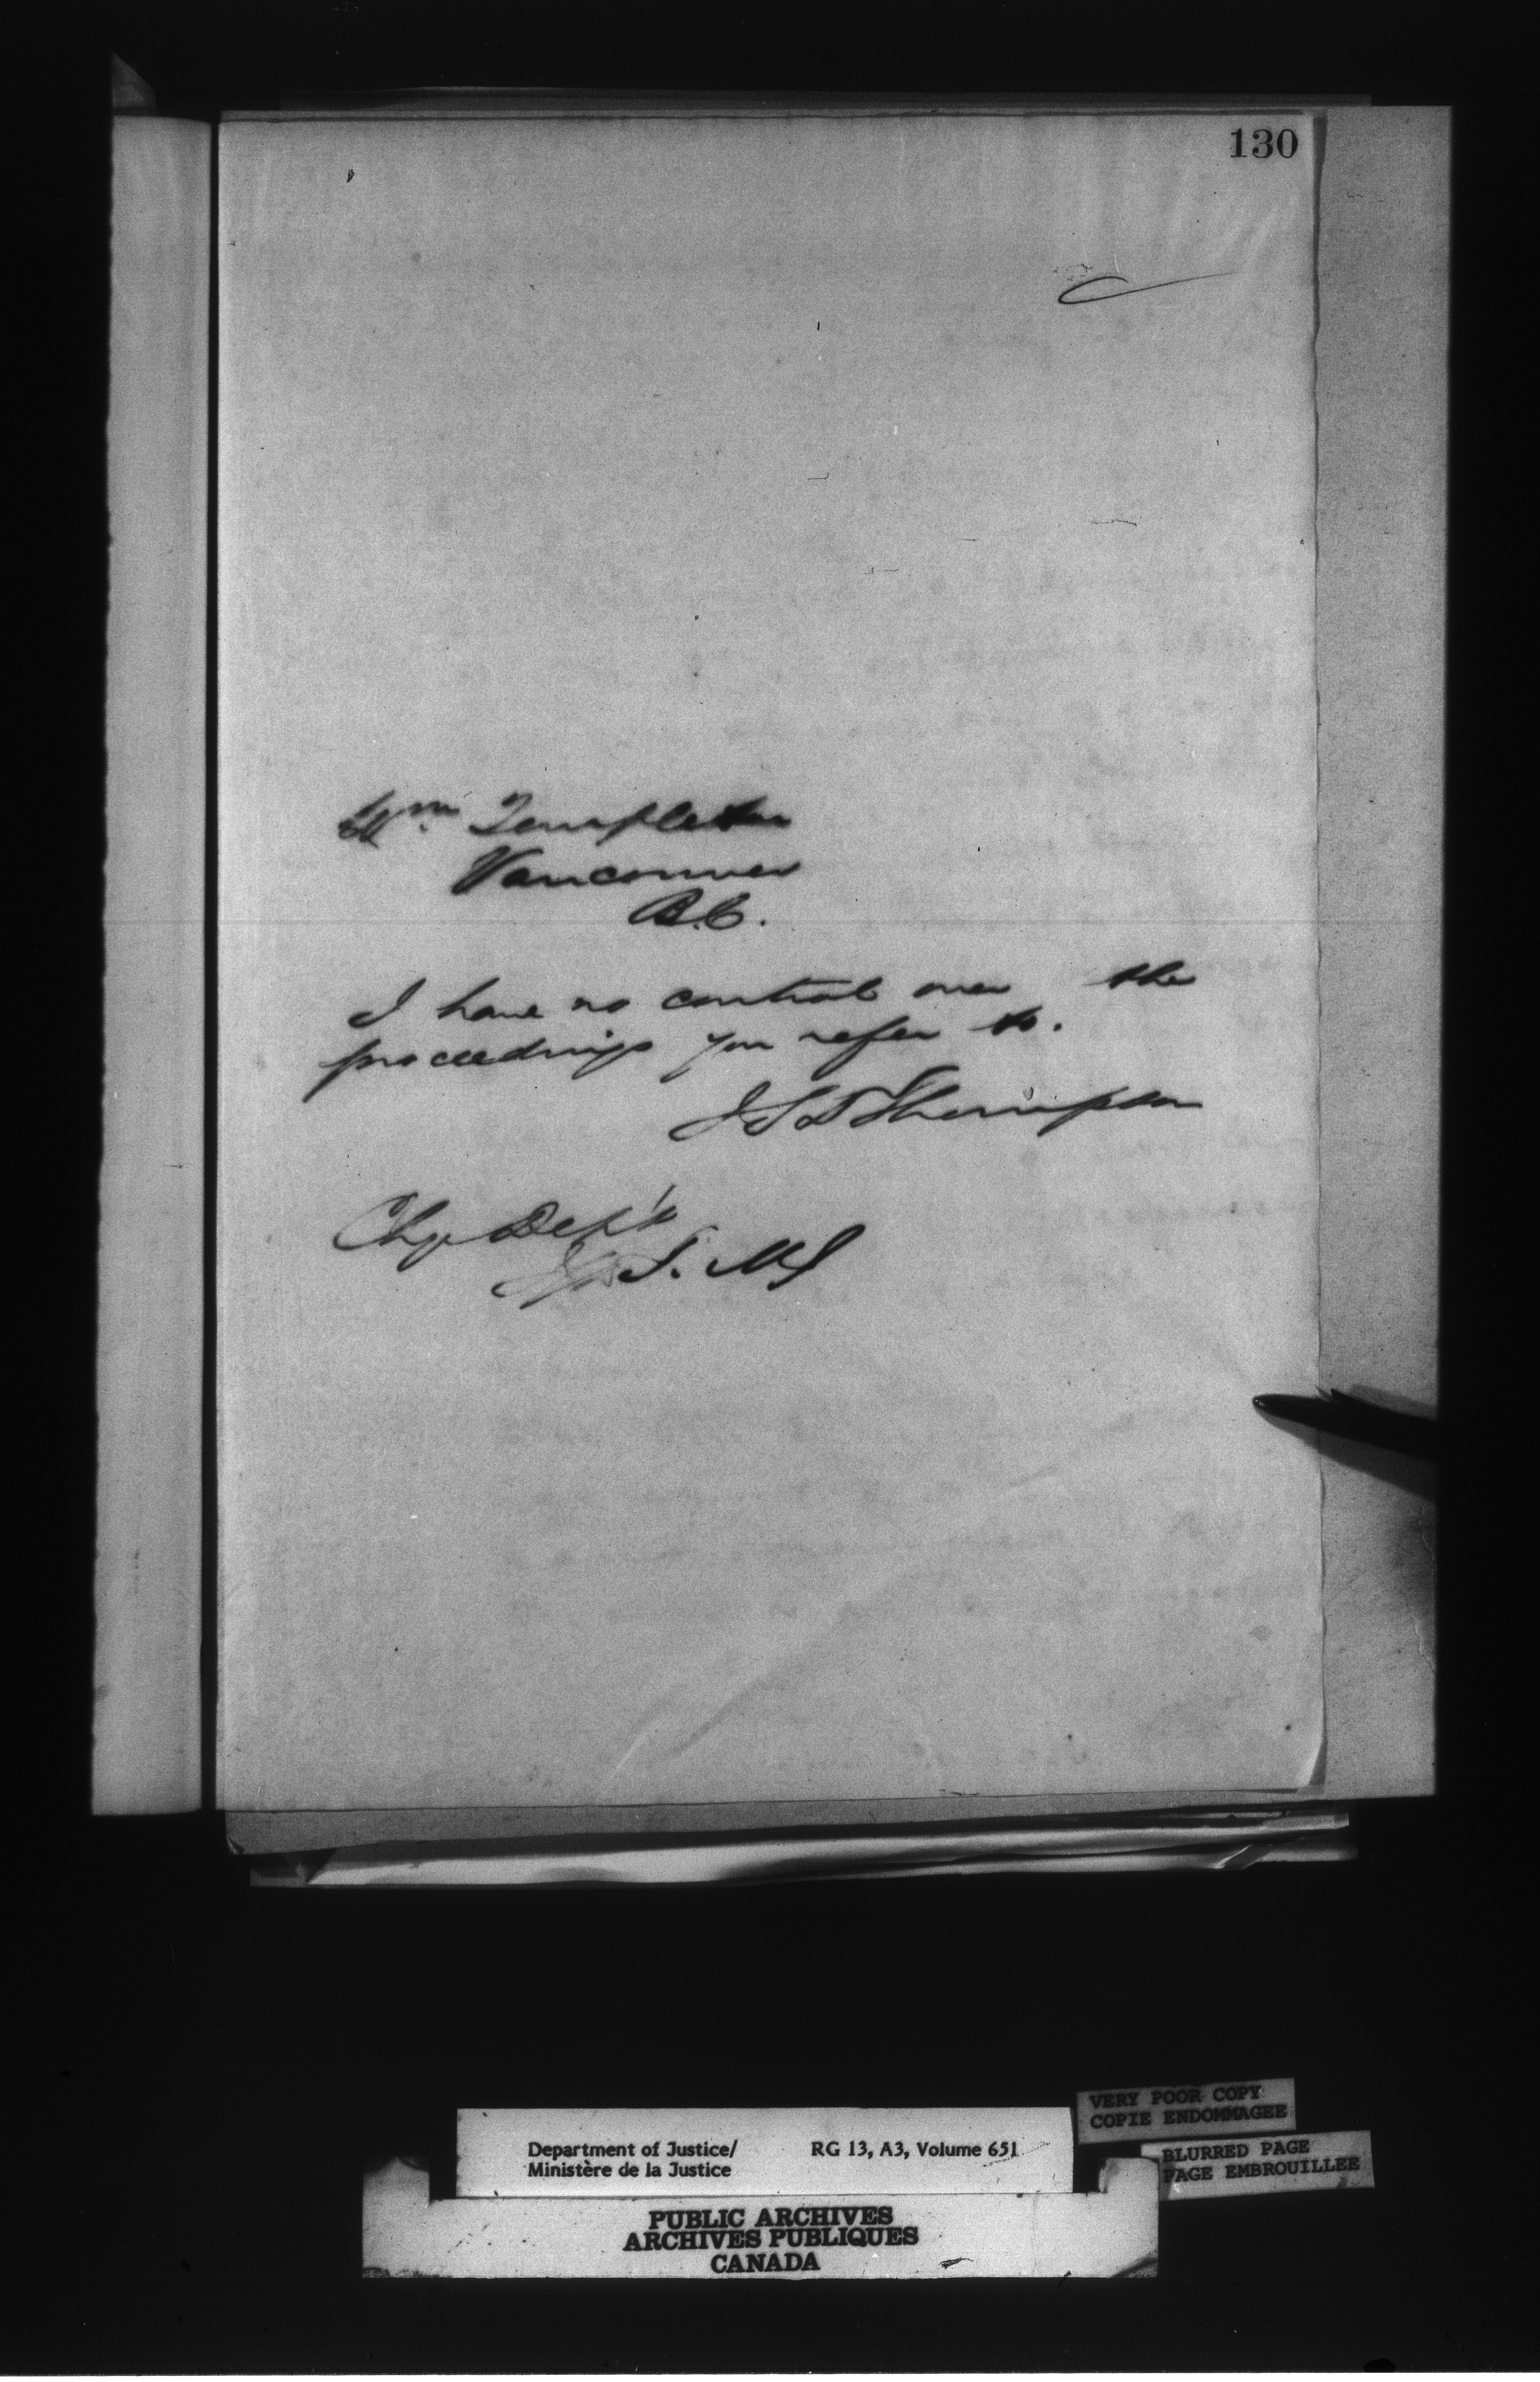 130
Wm. Templeton
Vancouver
B.C.
I have no control over the
proceedings you refer to.
J S D Thompson
Chg Dep't
VERY POOR COPY
COPIE ENDOMMAGEE
Department of Justice/ RG 13, A3, Volume 651
Ministère de la Justice
BLURRED PAGE
PAGE EMBROUILLEE
PUBLIC ARCHIVES
ARCHIVES PUBLIQUES
CANADA